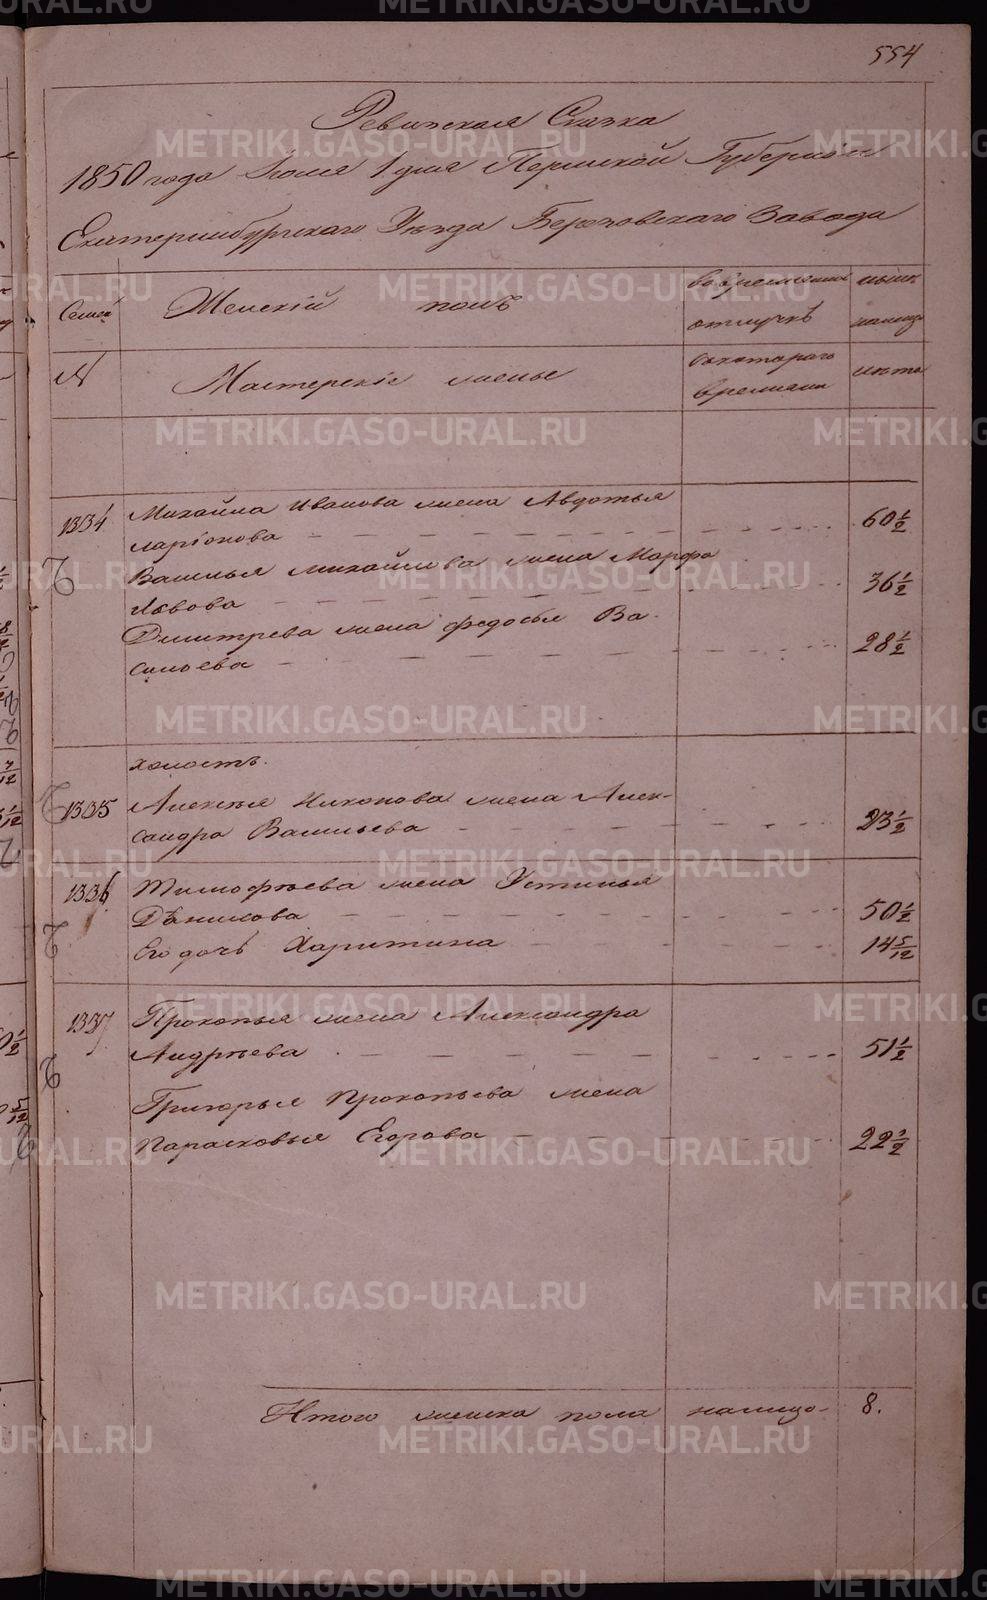 554
Ревизская Сказка
1850 года Іюля 1 дня Пермской Губерніи
Екатеринбургскаго Уѣзда Березовскаго Завода
Семей Женскій полъ во временной отлучкѣ нынѣ налицо
№ Мастерскіе жены съ котораго времени лѣта
1334 Михайла Иванова жена Авдотья
Ларіонова 60 1/2
Василья Михайлова жена Марфа
Львова 36 1/2
Дмитрева жена Федосья Ва-
сильева 28 1/2
холостъ.
1335 Алексѣя Никонова жена Алек-
сандра Васильева 23 1/2
1336 Тимофѣева жена Устинья
Данилова 50 1/2
Его дочь Харитина 14 5/12
1337 Прокопья жена Александра
Андрѣева 51 1/2
Григорья Прокопьева жена
Парасковья Егорова 22 1/2
Итого женска пола налицо 8.
METRIKI.GASO-URAL.RU